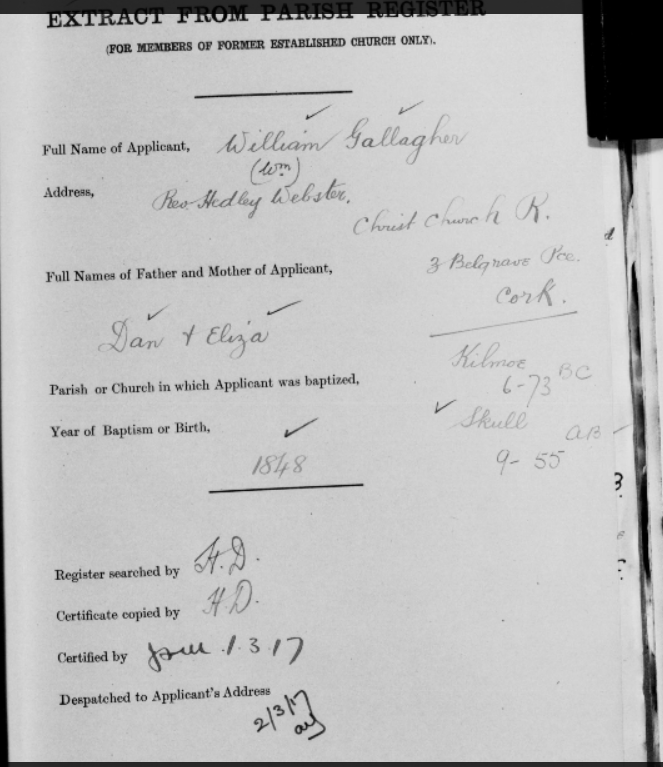 EXTRACT FROM PARISH REGISTER
(FOR MEMBERS OF FORMER ESTABLISHED CHURCH ONLY).
Full Name of Applicant, William Gallagher
(Wm)
Address, Rev Hedley Webster.
Christ Church R.
3 Belgrave Pce.
Cork.
Full Names of Father and Mother of Applicant,
Dan + Eliza
Kilmoe BC
6-73
Parish or Church in which Applicant was baptized,
Skull AB
9-55
Year of Baptism or Birth,
1848
Register searched by H.D.
Certificate copied by H.D.
Certified by 1.3.17
Despatched to Applicant's Address
2/3/17